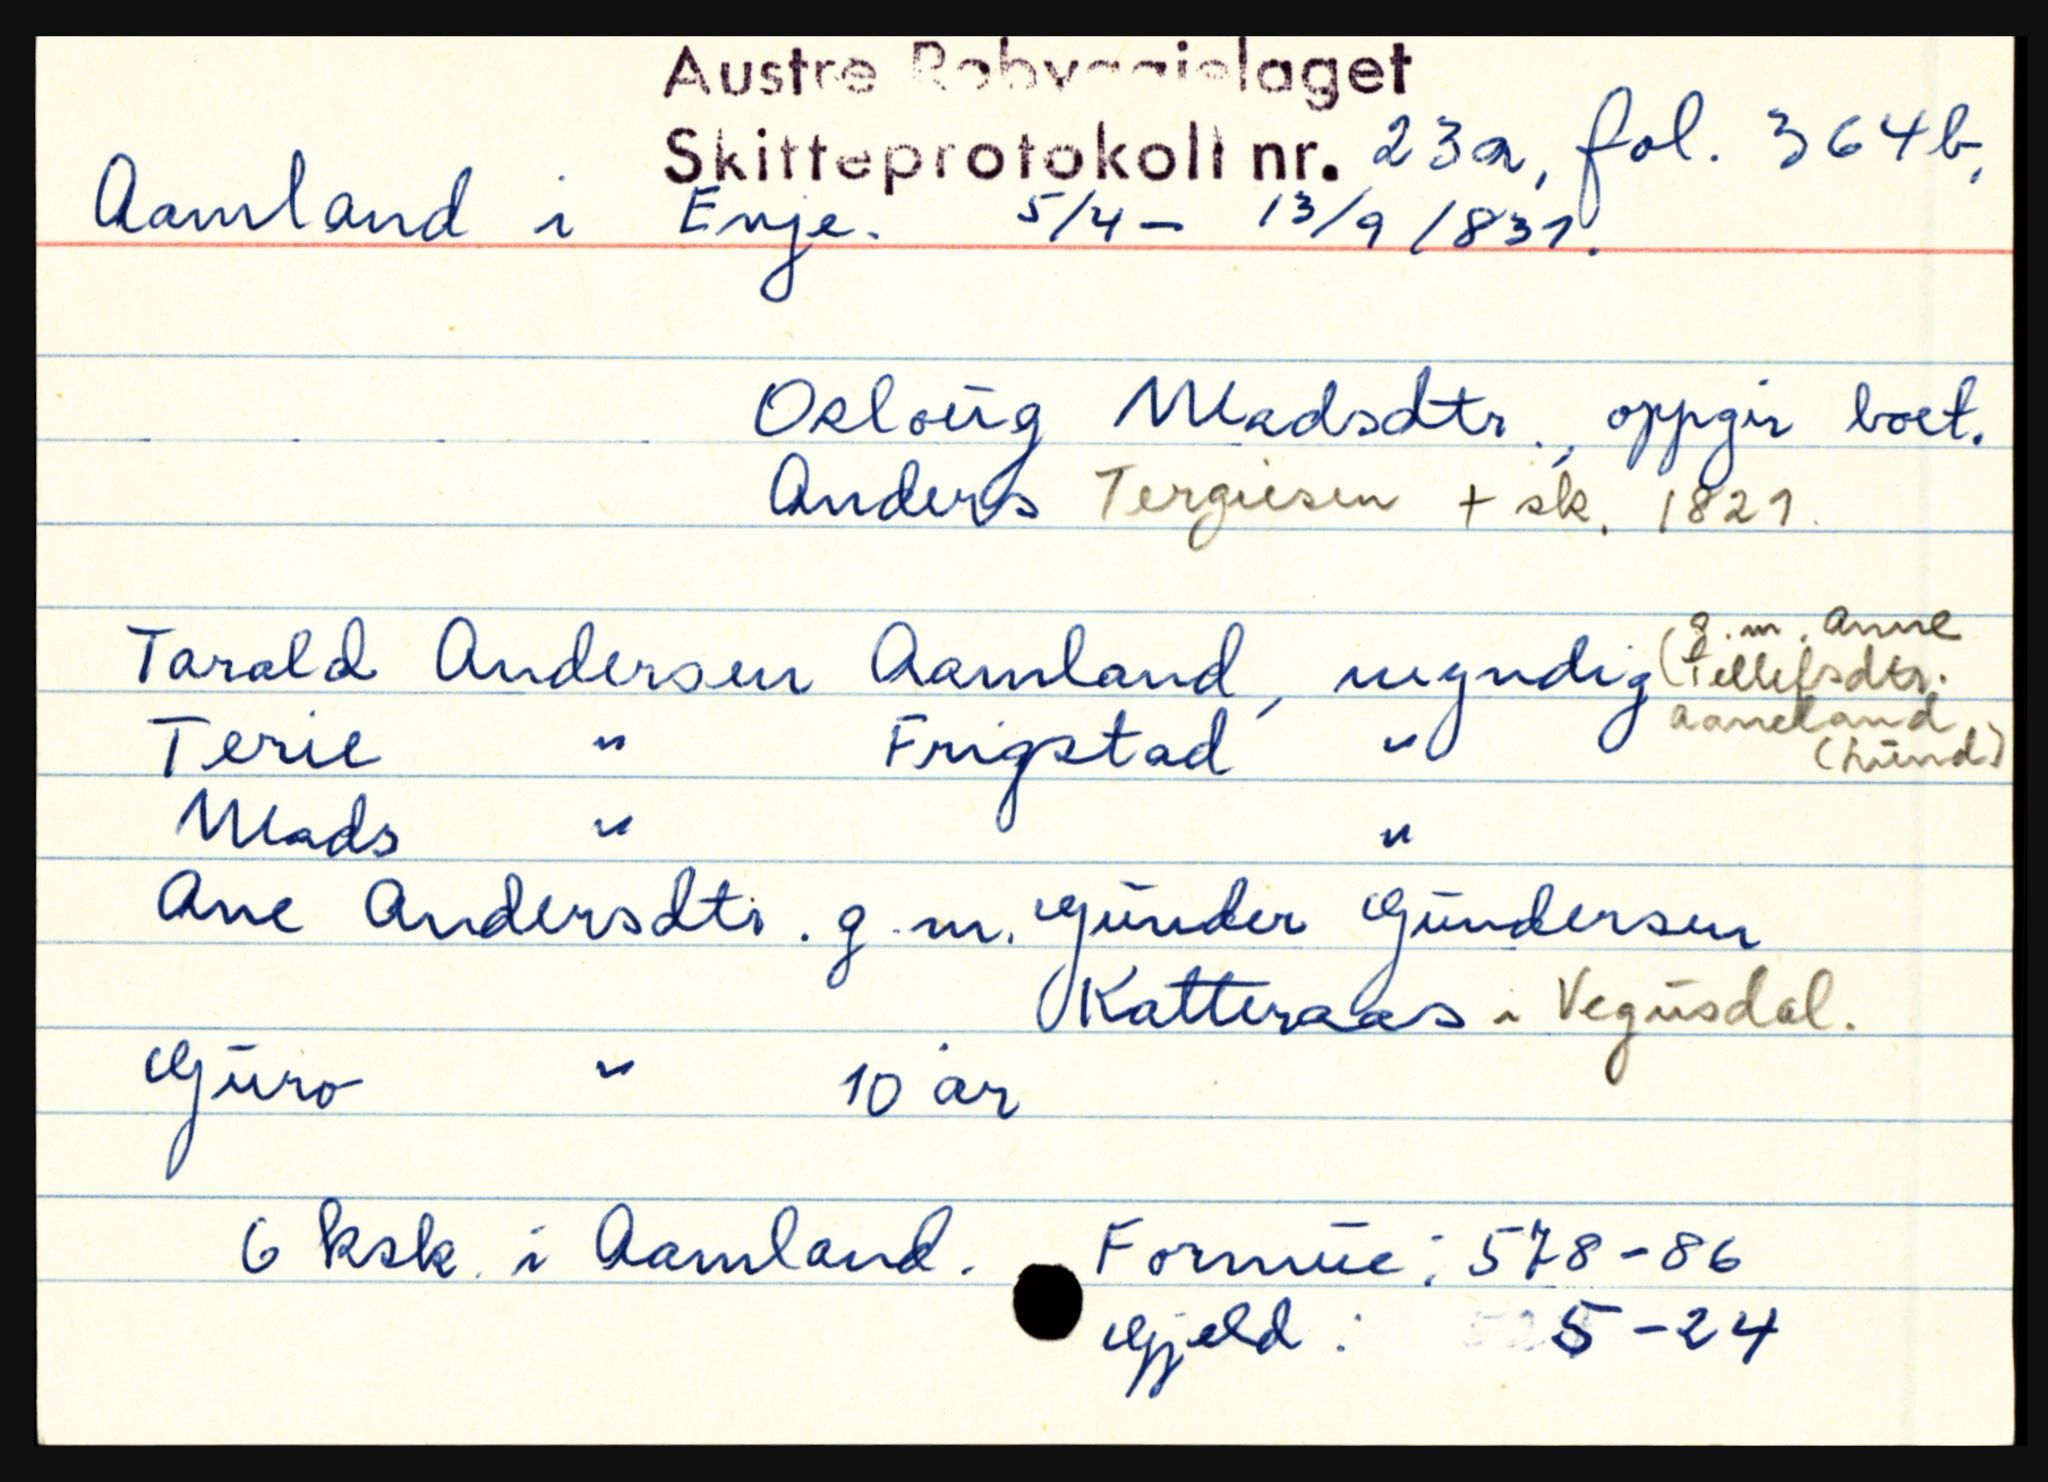 Austre Robyggjelaget
Skifteprotokoll nr. 23a, fol. 364b,
Aamland i Evje. 5/4 - 13/9 1831.
Osloug Madsdtr., oppgir boet.
Anders Tergiesen + sk. 1821.
Tarald Andersen Aamland, myndig (g.m. Anne
Tellefsdtr.
Aaneland
(Lund)
Terie " Frigstad "
Mads " "
Ane Andersdtr. g.m. Gunder Gundersen
Katteraas i Vegusdal.
Guro " 10 år
6 ksk. i Aamland. Formue: 578-86
Gjeld: 5-24